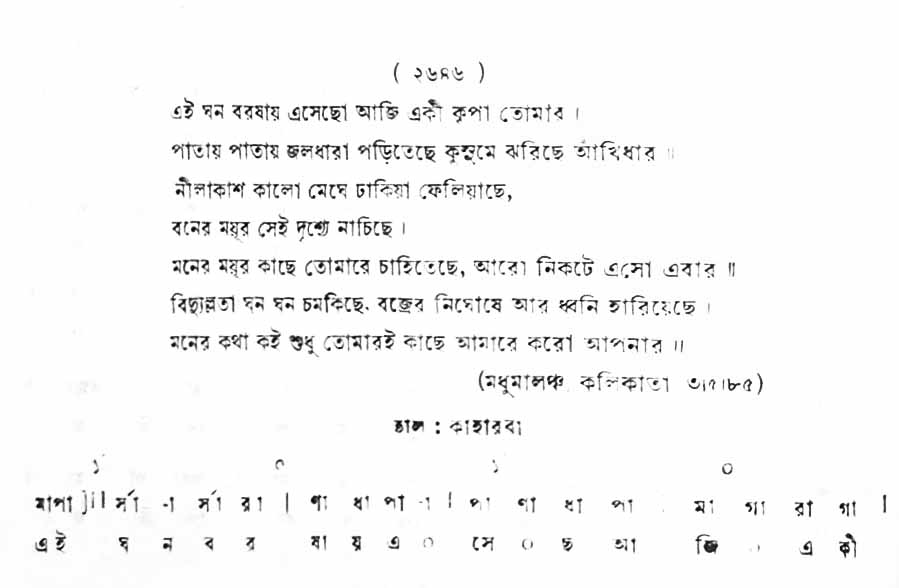 ( ২৬৪৬ )
এই ঘন বরষায় এসেছো আজি একী কৃপা তোমার ।
পাতায় পাতায় জলধারা পড়িতেছে কুসুমে ঝরিছে আঁখিধার ॥
নীলাকাশ কালো মেঘে ঢাকিয়া ফেলিয়াছে,
বনের ময়ূর সেই দৃশ্যে নাচিছে ।
মনের ময়ূর কাছে তোমারে চাহিতেছে, আরো নিকটে এসো এবার ॥
বিদ্যুল্লতা ঘন ঘন চমকিছে. বজ্রের নির্ঘোষে আর ধ্বনি হারিয়েছে ।
মনের কথা কই শুধু তোমারই কাছে আমারে করো আপনার ॥
(মধুমালঞ্চ কলিকাতা ৩।৫।৮৫)
তাল : কাহারবা
১ ০ ১ ০
মাপা ]i| র্সা -া র্সা রা | ণা ধা পা -া | পা ণা ধা পা মা গা রা গা |
এই ঘ ন ব র ষা য় এ ০ সে ০ ছ আ জি ০ এ কী